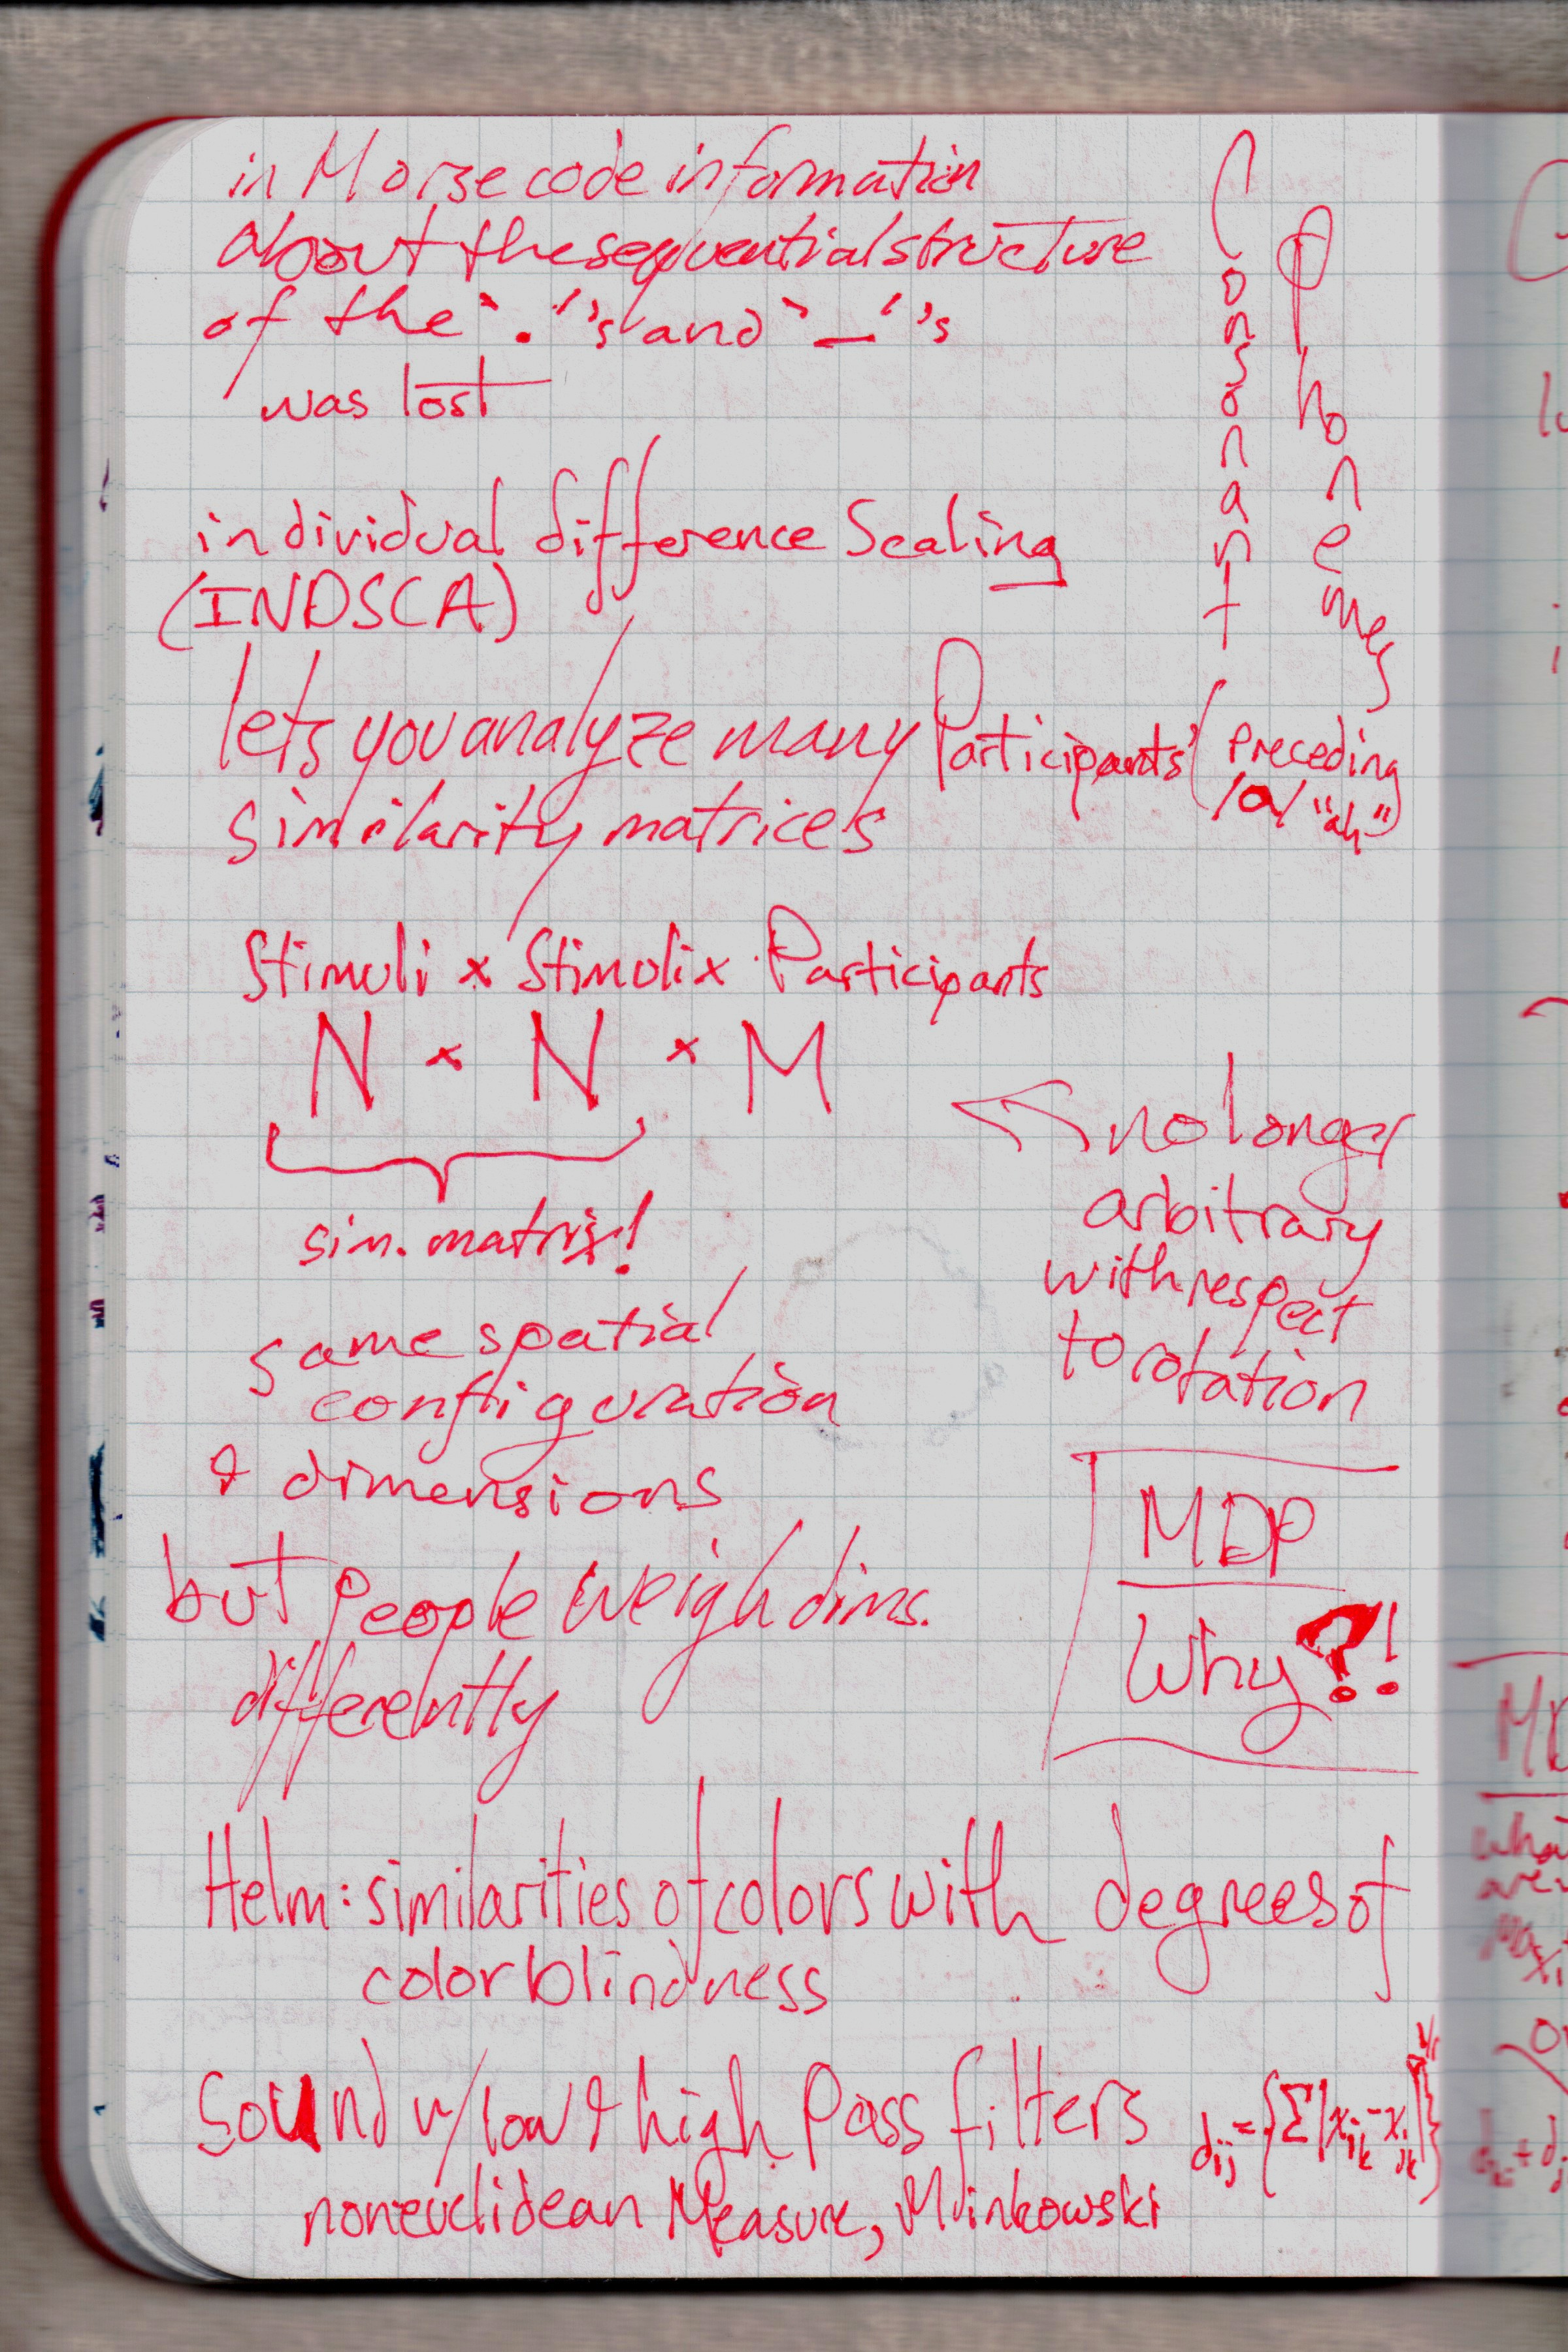 in Morse code information
about the sequential structure
of the `.''s and `_''s
was lost
Consonant
Phonemes
(preceding
/a/ "ah")
individual difference Scaling
(INDSCA)
lets you analyze many Participants'
similarity matrices
Stimuli x Stimuli x Participants
N x N x M
sim. matrix!
no longer
arbitrary
with respect
to rotation
same spatial
configuration
& dimensions
but people weigh dims.
differently
MDP
Why?!
Helm: similarities of colors with degrees of
colorblindness
Sound w/ low & high Pass filters
dij = {Σ|xik - xjk|^r}^1/r
noneuclidean Measure, Minkowski